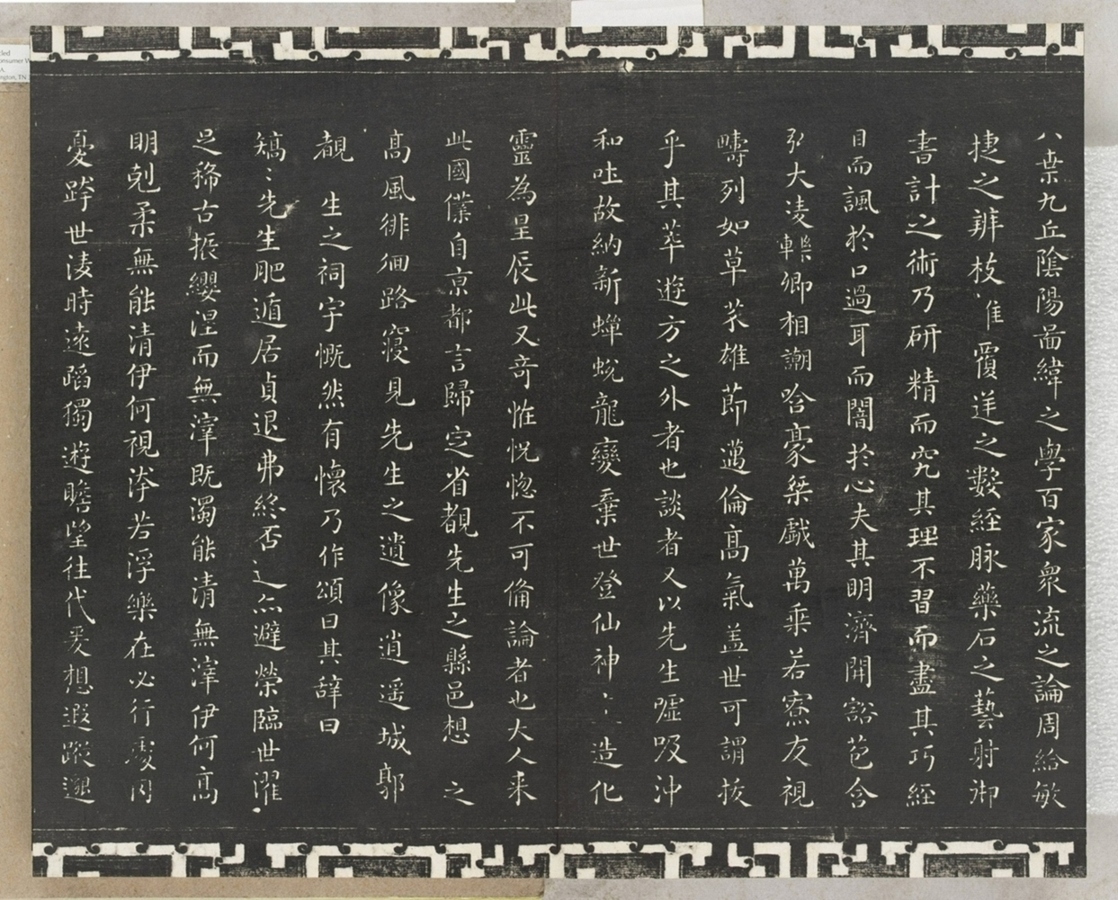 八索九丘陰陽啚緯之學百家衆流之論周給敏
捷之辨枝隹覆逆之數經脉藥石之藝射御
書計之術乃研精而究其理不習而盡其巧經
目而諷於口過耳而闇於心夫其明濟開豁苞含
弘大淩轢卿相謿哈豪桀戲萬乘若寮友視
疇列如草芥雄節邁倫高氣盖世可謂拔
乎其萃遊方之外者也談者又以先生噓吸沖
和吐故納新蟬蛻龍變棄世登仙神造化
靈為星辰此又奇恠怳惚不可俻論者也大人来
此國僕自京都言歸定省覩先生之縣邑想之
高風徘徊路寢見先生之遺像逍遥城郭
觀生之祠宇慨然有懷乃作頌曰其辞曰
矯〻先生肥遁居貞退弗終否進亦避榮臨世濯
足稀古振纓涅而無滓既濁能清無滓伊何高
明剋柔無能清伊何視洿若浮樂在必行處罔
憂跨世淩時遠蹈獨遊瞻望往代爰想遐蹤邈